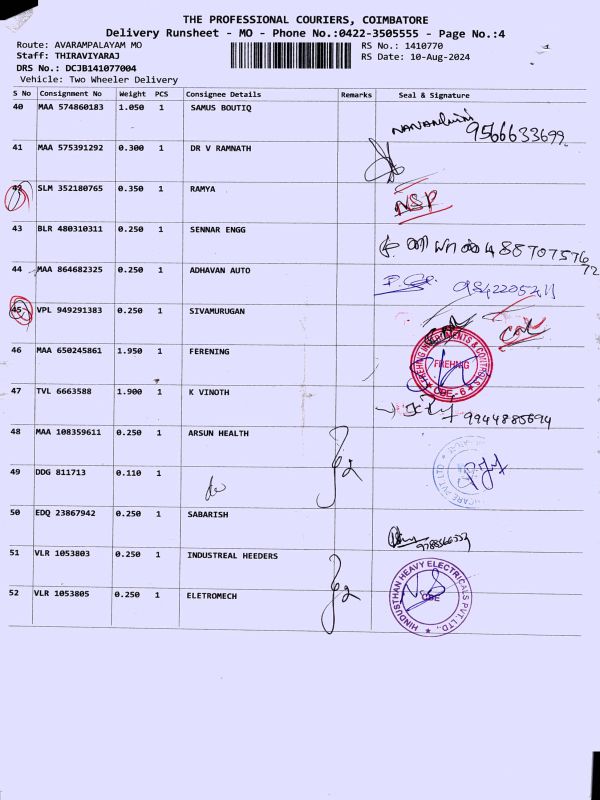 THE PROFESSIONAL COURIERS, COIMBATORE
Delivery Runsheet - MO - Phone No.:0422-3505555 - Page No.:4
Route: AVARAMPALAYAM MO RS No.: 1410770
Staff: THIRAVIYARAJ RS Date: 10-Aug-2024
DRS No.: DCJB141077004
Vehicle: Two Wheeler Delivery
S No Consignment No Weight PCS Consignee Details Remarks Seal & Signature
40 MAA 574860183 1.050 1 SAMUS BOUTIQ
9566633699
41 MAA 575391292 0.300 1 DR V RAMNATH
42 SLM 352180765 0.350 1 RAMYA NSP
43 BLR 480310311 0.250 1 SENNAR ENGG
44 MAA 864682325 0.250 1 ADHAVAN AUTO
45 VPL 949291383 0.250 1 SIVAMURUGAN
46 MAA 650245861 1.950 1 FERENING
FREHNIG INSTRUMENTS & CONTROLS
FREHNIG
CBE - 6
47 TVL 6663588 1.900 1 K VINOTH
9944885694
48 MAA 108359611 0.250 1 ARSUN HEALTH
49 DDG 811713 0.110 1
50 EDQ 23867942 0.250 1 SABARISH
51 VLR 1053803 0.250 1 INDUSTREAL HEEDERS
52 VLR 1053805 0.250 1 ELETROMECH
HINDUSTHAN HEAVY ELECTRICALS PVT. LTD.,
CBE